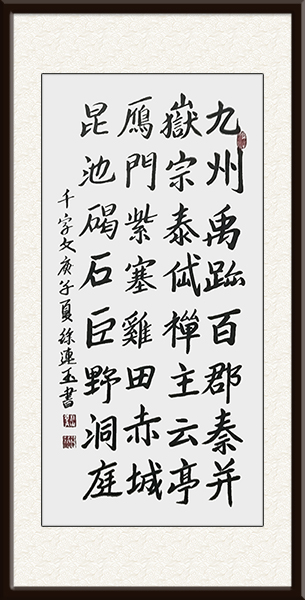 九州禹跡百郡秦并
嶽宗泰岱禪主云亭
鴈門紫塞雞田赤城
昆池碣石巨野洞庭
千字文庚子夏徐連玉書